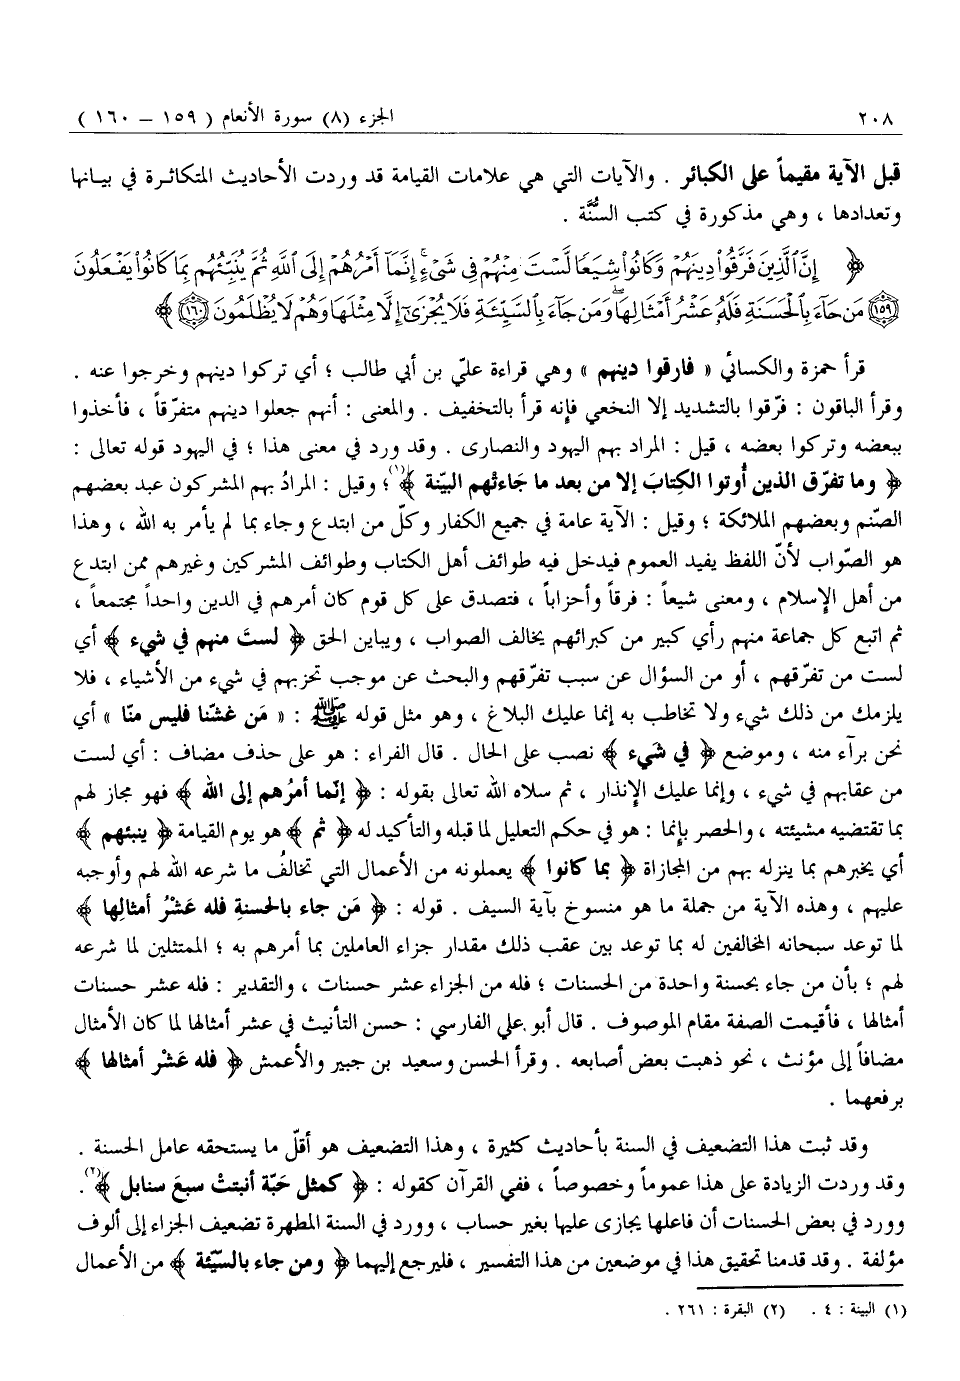 ٢٠٨ الجزء (٨) سورة الأنعام ( ١٥٩ – ١٦٠ )
قبل الآية مقيماً على الكبائر . والآيات التي هي علامات القيامة قد وردت الأحاديث المتكاثرة في بيانها
وتعدادها ، وهي مذكورة في كتب السُّنَّة .
﴿ إِنَّ ٱلَّذِينَ فَرَّقُوا۟ دِينَهُمْ وَكَانُوا۟ شِيَعًا لَّسْتَ مِنْهُمْ فِى شَىْءٍ ۚ إِنَّمَآ أَمْرُهُمْ إِلَى ٱللَّهِ ثُمَّ يُنَبِّئُهُم بِمَا كَانُوا۟ يَفْعَلُونَ
﴿١٥٩﴾ مَن جَآءَ بِٱلْحَسَنَةِ فَلَهُۥ عَشْرُ أَمْثَالِهَا ۖ وَمَن جَآءَ بِٱلسَّيِّئَةِ فَلَا يُجْزَىٰٓ إِلَّا مِثْلَهَا وَهُمْ لَا يُظْلَمُونَ ﴿١٦٠﴾ ﴾
قرأ حمزة والكسائي « فارقوا دينهم » وهي قراءة عليّ بن أبي طالب ؛ أي تركوا دينهم وخرجوا عنه .
وقرأ الباقون : فرّقوا بالتشديد إلا النخعي فإنه قرأ بالتخفيف . والمعنى : أنهم جعلوا دينهم متفرّقاً ، فأخذوا
ببعضه وتركوا بعضه ، قيل : المراد بهم اليهود والنصارى . وقد ورد في معنى هذا ؛ في اليهود قوله تعالى :
﴿ وما تفرّق الذين أُوتوا الكِتابَ إلا من بعد ما جَاءتْهم البيّنة ﴾(١) ؛ وقيل : المرادُ بهم المشركون عبد بعضهم
الصّنم وبعضهم الملائكة ؛ وقيل : الآية عامة في جميع الكفار وكلّ من ابتدع وجاء بما لم يأمر به الله ، وهذا
هو الصّواب لأنّ اللفظ يفيد العموم فيدخل فيه طوائف أهل الكتاب وطوائف المشركين وغيرهم ممن ابتدع
من أهل الإسلام ، ومعنى شيعاً : فرقاً وأحزاباً ، فتصدق على كل قوم كان أمرهم في الدين واحداً مجتمعاً ،
ثم اتبع كل جماعة منهم رأي كبير من كبرائهم يخالف الصواب ، ويباين الحق ﴿ لستَ منهم في شيء ﴾ أي
لست من تفرّقهم ، أو من السؤال عن سبب تفرّقهم والبحث عن موجب تحزبهم في شيء من الأشياء ، فلا
يلزمك من ذلك شيء ولا تخاطب به إنما عليك البلاغ ، وهو مثل قوله ﷺ : « مَن غشّنا فليس منّا » أي
نحن برآء منه ، وموضع ﴿ في شَيء ﴾ نصب على الحال . قال الفراء : هو على حذف مضاف : أي لست
من عقابهم في شيء ، وإنما عليك الإنذار ، ثم سلاه الله تعالى بقوله : ﴿ إنّما أمرُهم إلى الله ﴾ فهو مجاز لهم
بما تقتضيه مشيئته ، والحصر بإنما : هو في حكم التعليل لما قبله والتأكيد له ﴿ ثم ﴾ هو يوم القيامة ﴿ ينبئهم ﴾
أي يخبرهم بما ينزله بهم من المجازاة ﴿ بما كانوا ﴾ يعملونه من الأعمال التي تخالفُ ما شرعه الله لهم وأوجبه
عليهم ، وهذه الآية من جملة ما هو منسوخ بآية السيف . قوله : ﴿ مَن جاء بالحسنةِ فله عَشْرُ أمثالِها ﴾
لما توعد سبحانه المخالفين له بما توعد بين عقب ذلك مقدار جزاء العاملين بما أمرهم به ؛ الممتثلين لما شرعه
لهم ؛ بأن من جاء بحسنة واحدة من الحسنات ؛ فله من الجزاء عشر حسنات ، والتقدير : فله عشر حسنات
أمثالها ، فأقيمت الصفة مقام الموصوف . قال أبو علي الفارسي : حسن التأنيث في عشر أمثالها لما كان الأمثال
مضافاً إلى مؤنث ، نحو ذهبت بعض أصابعه . وقرأ الحسن وسعيد بن جبير والأعمش ﴿ فله عَشْر أمثالها ﴾
برفعهما .
وقد ثبت هذا التضعيف في السنة بأحاديث كثيرة ، وهذا التضعيف هو أقلّ ما يستحقه عامل الحسنة .
وقد وردت الزيادة على هذا عموماً وخصوصاً ، ففي القرآن كقوله : ﴿ كمثل حَبّة أنبتتْ سبعَ سنابل ﴾(٢) .
وورد في بعض الحسنات أن فاعلها يجازى عليها بغير حساب ، وورد في السنة المطهرة تضعيف الجزاء إلى ألوف
مؤلفة . وقد قدمنا تحقيق هذا في موضعين من هذا التفسير ، فليرجع إليهما ﴿ ومن جاء بالسّيّئة ﴾ من الأعمال
(١) البينة : ٤ . (٢) البقرة : ٢٦١ .